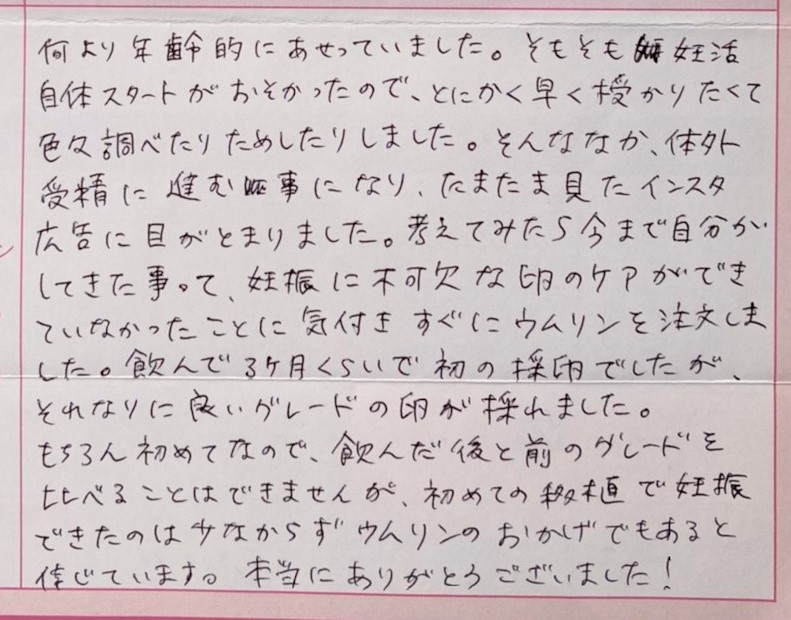 何より年齢的にあせっていました。そもそも妊活
自体スタートがおそかったので、とにかく早く授かりたくて
色々調べたりためしたりしました。そんななか、体外
受精に進む事になり、たまたま見たインスタ
広告に目がとまりました。考えてみたら今まで自分が
してきた事って、妊娠に不可欠な卵のケアができ
ていなかったことに気付きすぐにウムリンを注文しま
した。飲んで3ケ月くらいで初の採卵でしたが、
それなりに良いグレードの卵が採れました。
もちろん初めてなので、飲んだ後と前のグレードを
比べることはできませんが、初めての移植で妊娠
できたのは少なからずウムリンのおかげでもあると
信じています。本当にありがとうございました!